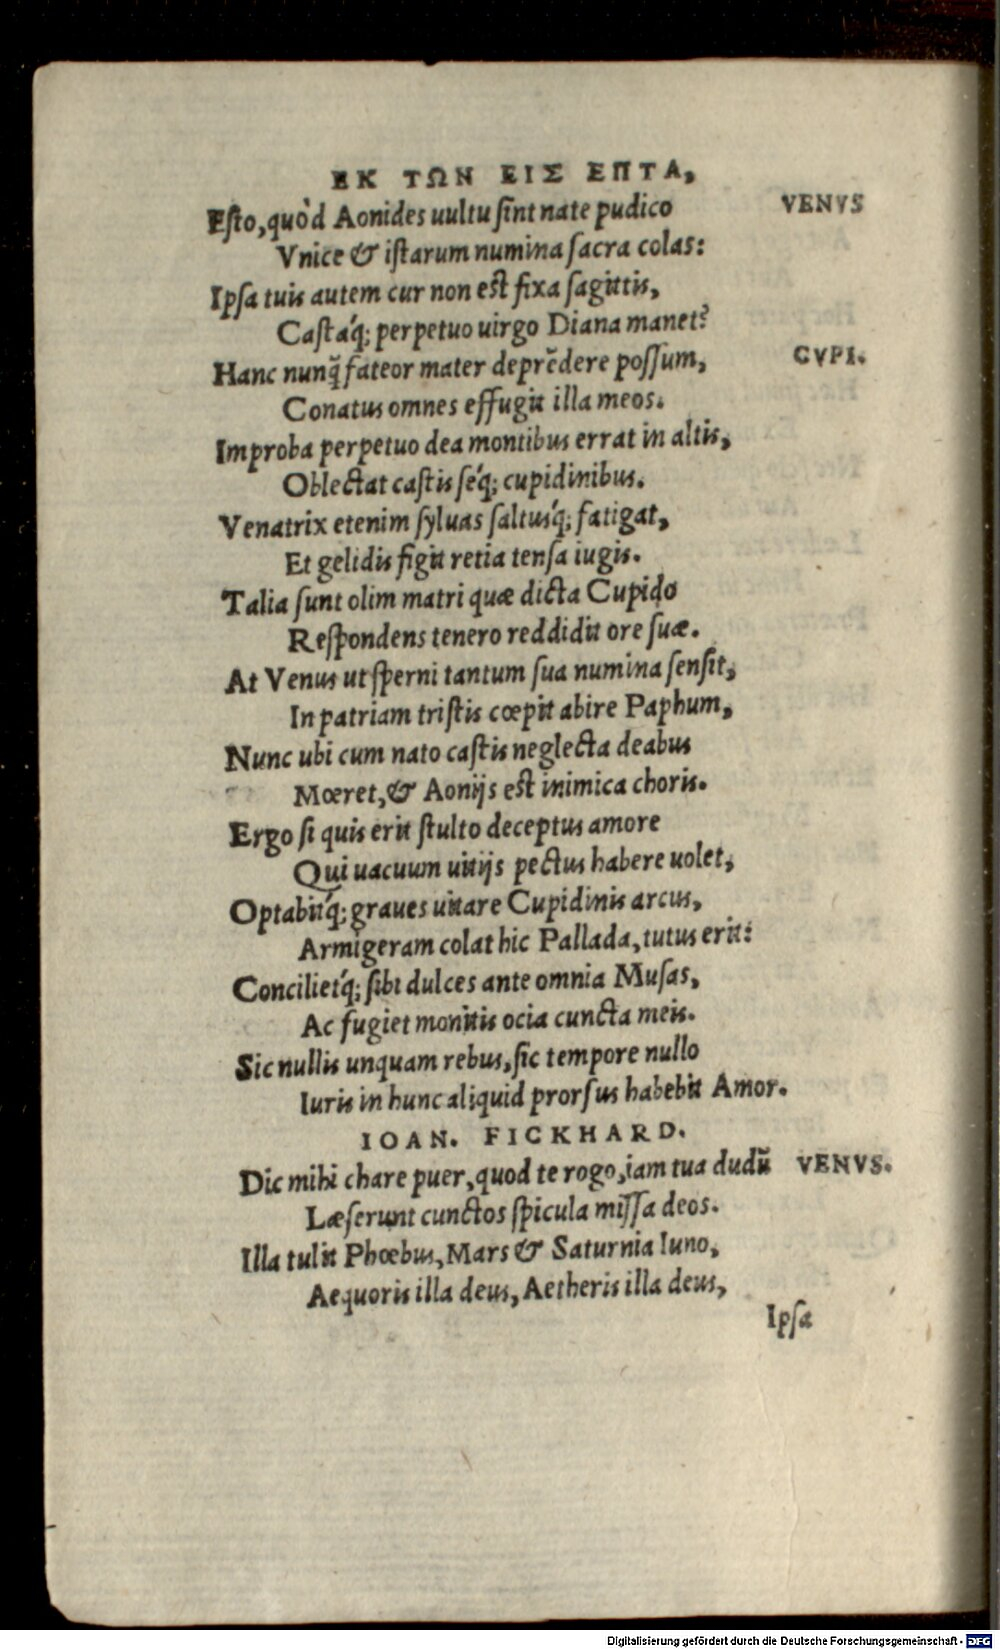 ΕΚ ΤΩΝ ΕΙΣ ΕΠΤΑ,
Eſto, quòd Aonides uultu ſint nate pudico VENVS
Vnice & iſtarum numina ſacra colas:
Ipſa tuis autem cur non eſt fixa ſagittis,
Caſtáq; perpetuo uirgo Diana manet?
Hanc nunq̃ fateor mater deprẽdere poſſum, CVPI.
Conatus omnes effugit illa meos.
Improba perpetuo dea montibus errat in altis,
Oblectat caſtis ſéq; cupidinibus.
Venatrix etenim ſyluas ſaltusq́; fatigat,
Et gelidis figit retia tenſa iugis.
Talia ſunt olim matri quæ dicta Cupido
Reſpondens tenero reddidit ore ſuæ.
At Venus ut ſperni tantum ſua numina ſenſit,
In patriam triſtis cœpit abire Paphum,
Nunc ubi cum nato caſtis neglecta deabus
Mœret, & Aonijs eſt inimica choris.
Ergo ſi quis erit ſtulto deceptus amore
Qui uacuum uitijs pectus habere uolet,
Optabitq́; graues uitare Cupidinis arcus,
Armigeram colat hic Pallada, tutus erit:
Concilietq́; ſibi dulces ante omnia Muſas,
Ac fugiet monitis ocia cuncta meis.
Sic nullis unquam rebus, ſic tempore nullo
Iuris in hunc aliquid prorſus habebit Amor.
IOAN. FICKHARD.
Dic mihi chare puer, quod te rogo, iam tua dudũ VENVS.
Læſerunt cunctos ſpicula miſſa deos.
Illa tulit Phœbus, Mars & Saturnia Iuno,
Aequoris illa deus, Aetheris illa deus,
Ipſa
Digitalisierung gefördert durch die Deutsche Forschungsgemeinschaft - DFG